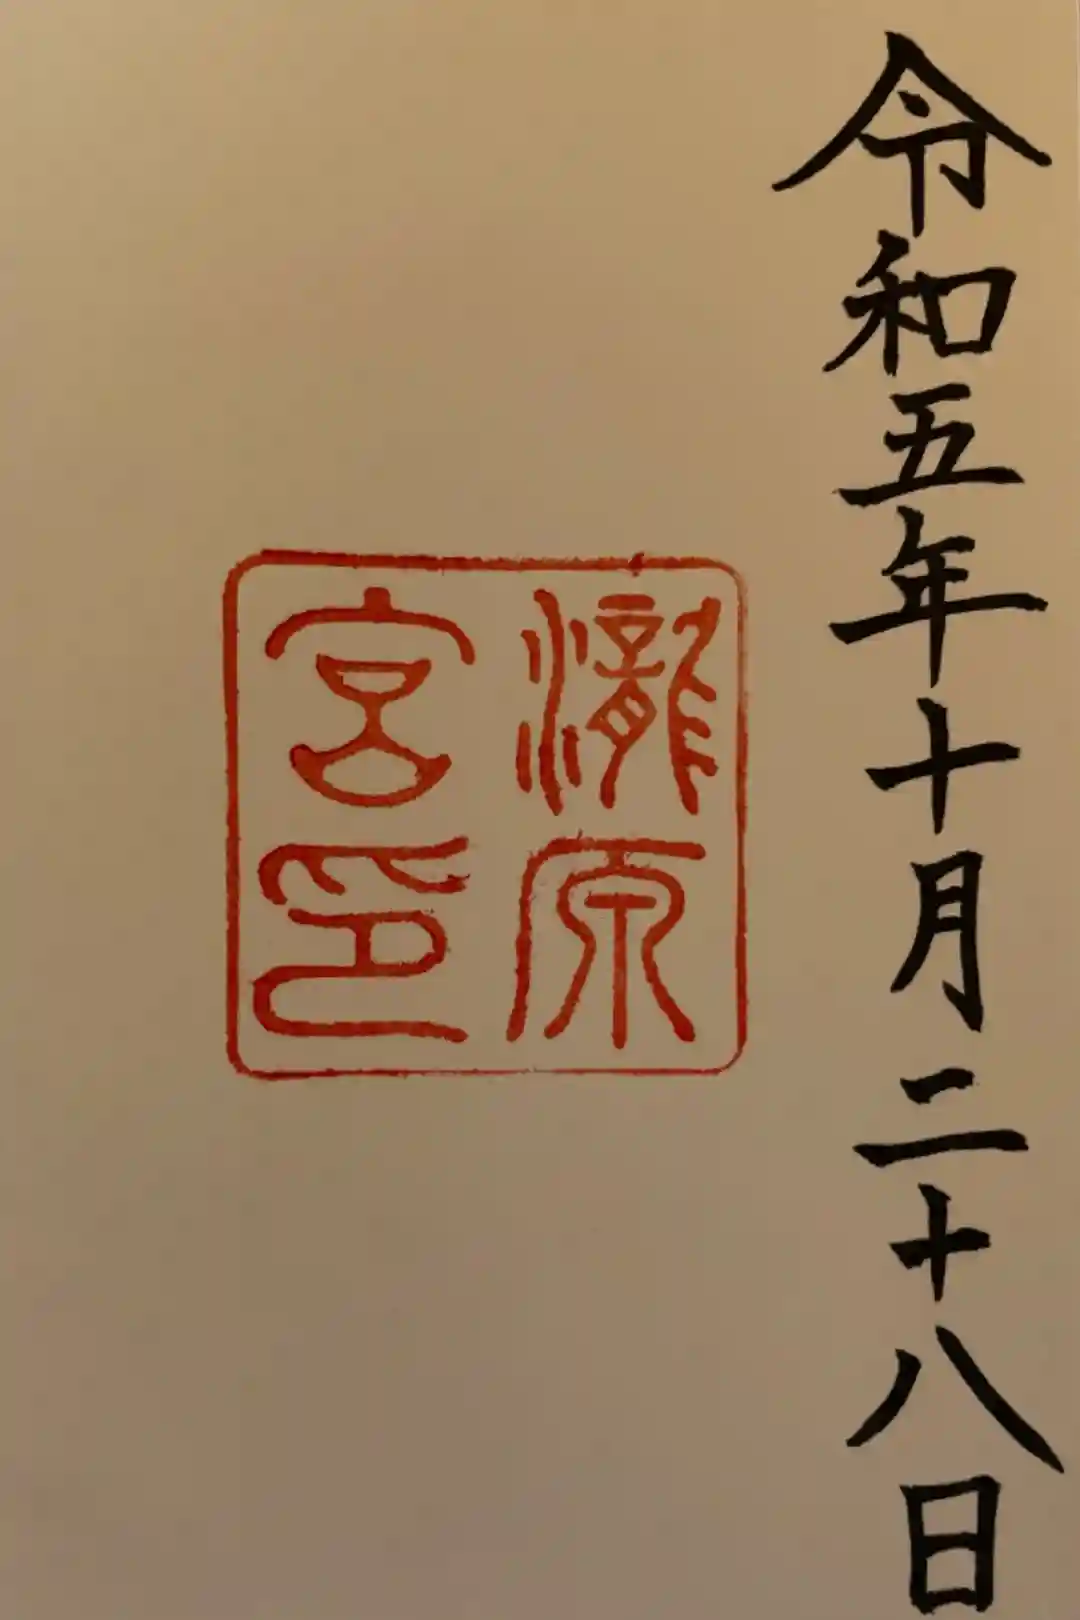 令和五年十月二十八日
瀧原
宮印